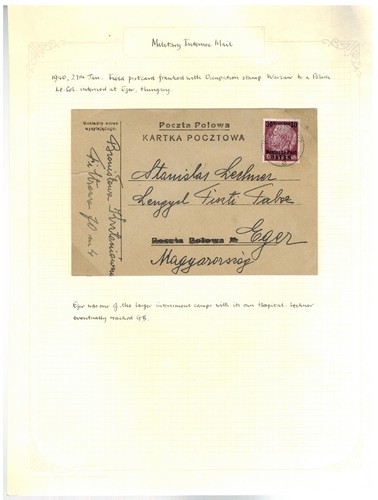 Military Internee Mail
1940, 27th Jan. Field postcard franked with Occupation stamp Warsaw to a Polish
Lt. Col. interned at Eger, Hungary.
Dokładny adres
wysyłającego:
Bronisława
Filtrowa 70 m 4
Poczta Polowa
KARTKA POCZTOWA
Stanislav Lechner
Lengyel Tiszti Tabor
Poczta Polowa № Eger
Magyarország
Eger was one of the larger internment camps with its own Hospital. Lechner
eventually reached GB.